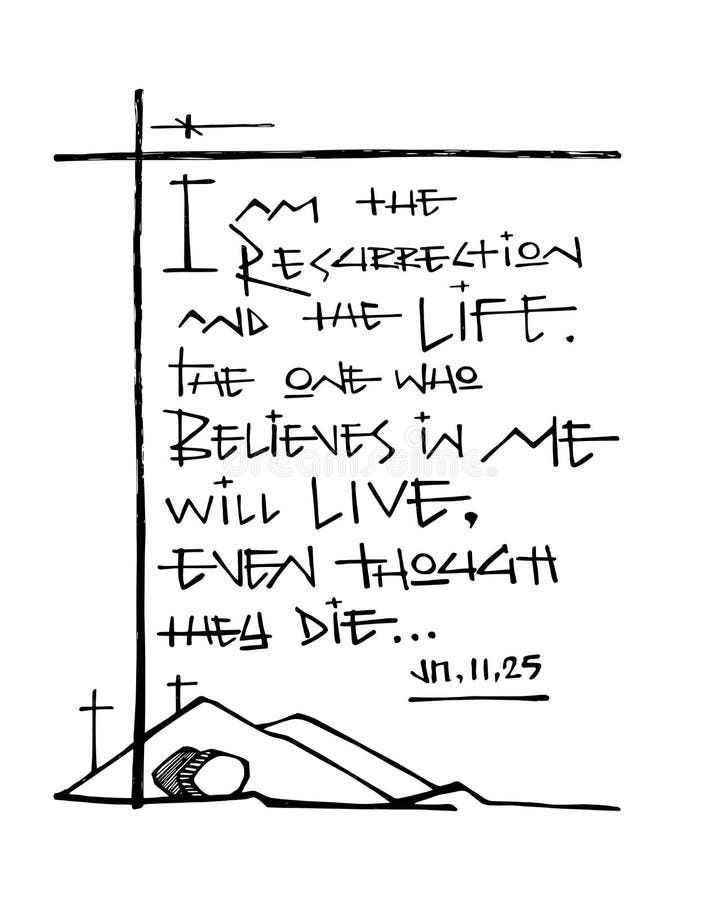 I am the
Resurrection
and the Life.
The one who
Believes in me
will LIVE,
even though
they die...
Jn, 11, 25
dreamstime